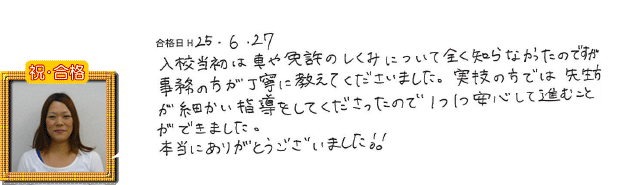 合格日 H 25.6.27
入校当初は車や免許のしくみについて全く知らなかったのですが
事務の方が丁寧に教えてくださいました。実技の方では先生方
が細かい指導をしてくださったので1つ1つ安心して進むこと
ができました。
本当にありがとうございました!!
祝・合格